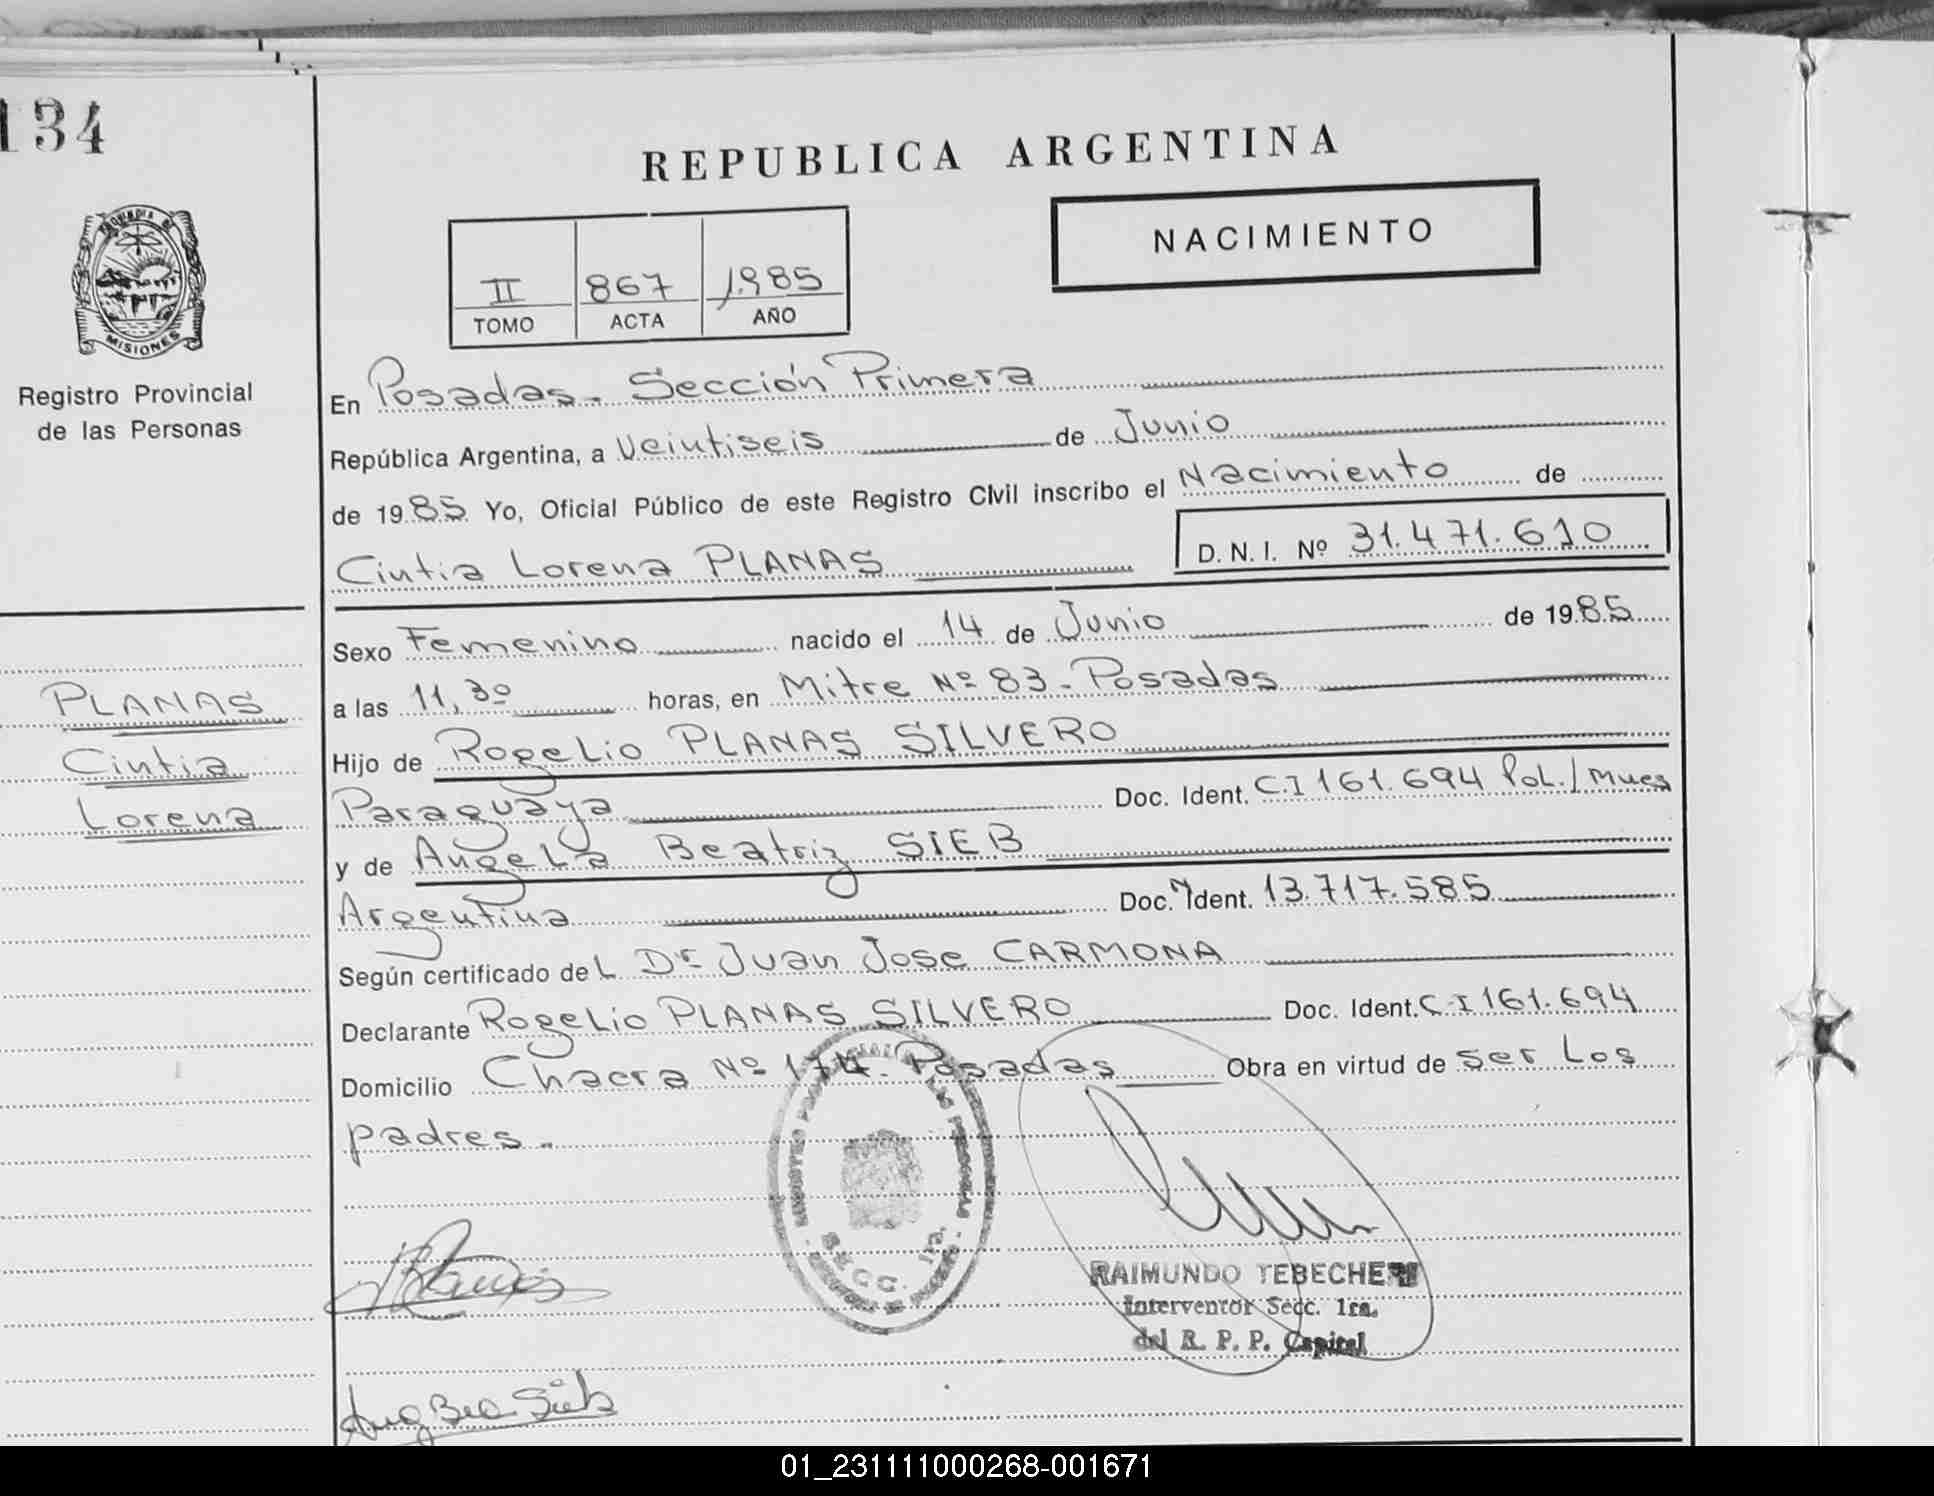 134
REPUBLICA ARGENTINA
NACIMIENTO
II 867 1.985
TOMO ACTA AÑO
PROVINCIA DE
MISIONES
Registro Provincial
de las Personas
En Posadas. Sección Primera
República Argentina, a Veintiseis de Junio
de 1985 Yo, Oficial Público de este Registro Civil inscribo el Nacimiento de
Cintia Lorena PLANAS D. N. I. Nº 31.471.610
Sexo Femenino nacido el 14 de Junio de 1985
a las 11,30 horas, en Mitre Nº 83. Posadas
Hijo de Rogelio PLANAS SILVERO
Paraguaya Doc. Ident. C.I 161.694 Pol./Mnes
y de Angela Beatriz SIEB
Argentina Doc. Ident. 13.717.585
Según certificado del Dr Juan Jose CARMONA
Declarante Rogelio PLANAS SILVERO Doc. Ident. C.I 161.694
Domicilio Chacra Nº 174. Posadas Obra en virtud de ser los
padres.
PLANAS
Cintia
Lorena
REGISTRO PROVINCIAL DE LAS PERSONAS
SECC. 1ra.
RAIMUNDO TEBECHERI
Interventor Secc. 1ra.
del R. P. P. Capital
Ang Bea Sieb
01_231111000268-001671